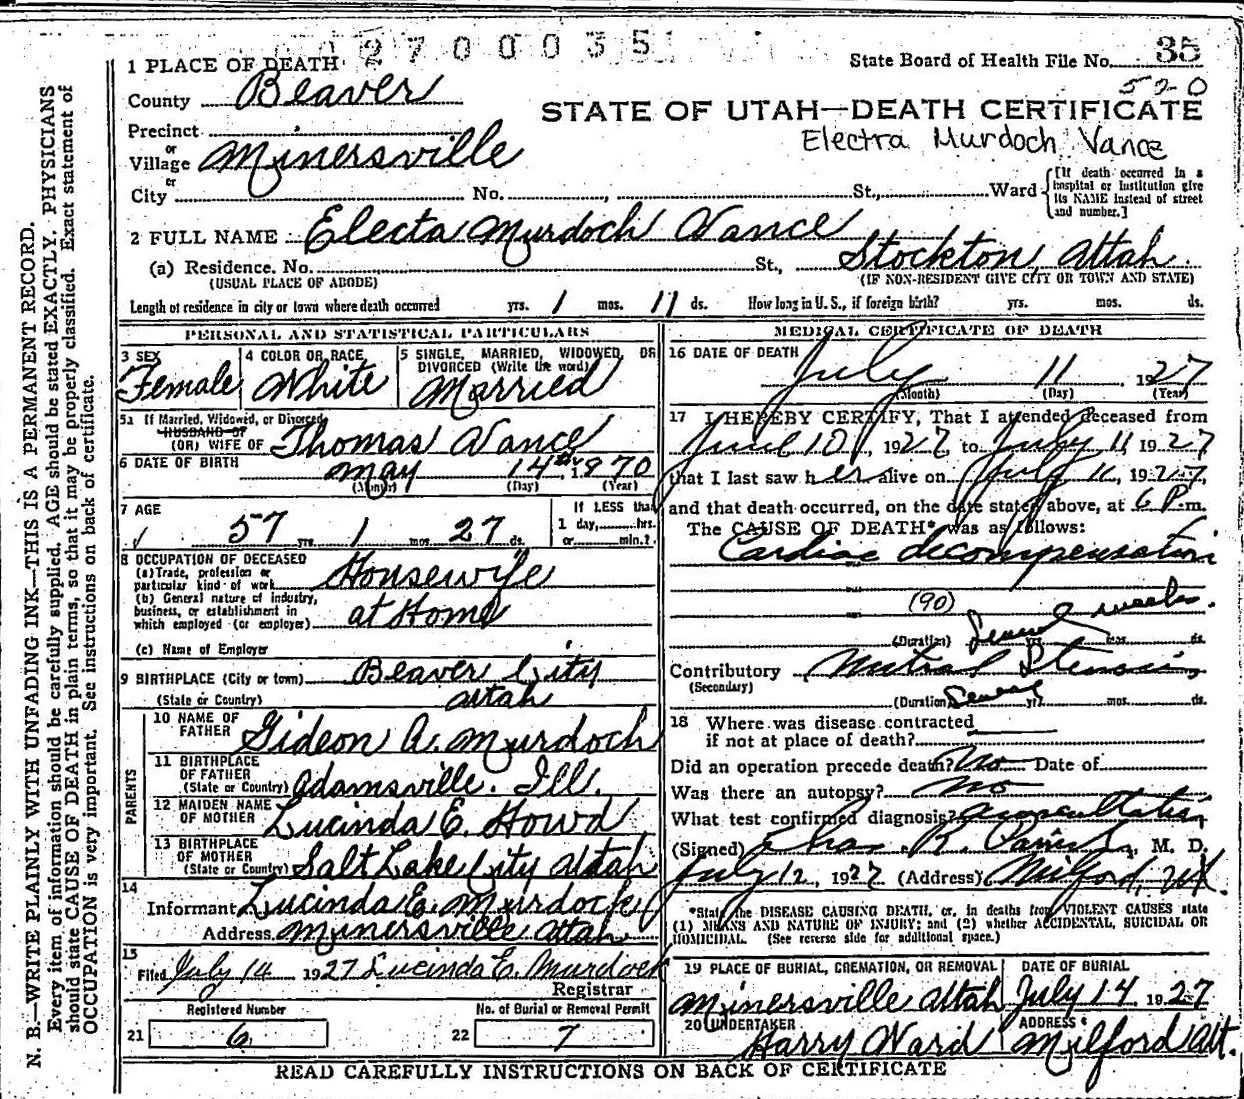 2700035
1 PLACE OF DEATH
State Board of Health File No. 35
County Beaver
520
STATE OF UTAH—DEATH CERTIFICATE
Precinct
Electra Murdoch Vance
or
Village Minersville
or
City No. St., Ward
[If death occurred in a hospital or institution give its NAME instead of street and number.]
2 FULL NAME Electa Murdoch Vance
(a) Residence. No. St., Stockton, Utah.
(USUAL PLACE OF ABODE) (IF NON-RESIDENT GIVE CITY OR TOWN AND STATE)
Length of residence in city or town where death occurred yrs. 1 mos. 11 ds. How long in U. S., if foreign birth? yrs. mos. ds.
PERSONAL AND STATISTICAL PARTICULARS
3 SEX 4 COLOR OR RACE 5 SINGLE, MARRIED, WIDOWED, OR
DIVORCED (Write the word)
Female White Married
5a If Married, Widowed, or Divorced
HUSBAND OF
(OR) WIFE OF Thomas Vance
6 DATE OF BIRTH May 14th, 1870
(Month) (Day) (Year)
7 AGE If LESS than
57 yrs. 1 mos. 27 ds. 1 day, hrs.
or min.?
8 OCCUPATION OF DECEASED
(a) Trade, profession or
particular kind of work Housewife
(b) General nature of industry,
business, or establishment in
which employed (or employer) at Home
(c) Name of Employer
9 BIRTHPLACE (City or town) Beaver City
(State or Country) Utah
PARENTS
10 NAME OF
FATHER Gideon A. Murdoch
11 BIRTHPLACE
OF FATHER
(State or Country) Adamsville. Ill.
12 MAIDEN NAME
OF MOTHER Lucinda E. Howd
13 BIRTHPLACE
OF MOTHER
(State or Country) Salt Lake City Utah
14
Informant Lucinda E. Murdock
Address Minersville Utah
15
Filed July 14 1927 Lucinda E. Murdock
Registrar
Registered Number No. of Burial or Removal Permit
21 6 22 7
MEDICAL CERTIFICATE OF DEATH
16 DATE OF DEATH
July 11, 1927
(Month) (Day) (Year)
17 I HEREBY CERTIFY, That I attended deceased from
June 10, 1927, to July 11, 1927
that I last saw her alive on July 11, 1927,
and that death occurred, on the date stated above, at 6 P.m.
The CAUSE OF DEATH* was as follows:
Cardiac decompensation
(90) weeks.
(Duration) Several yrs. mos. ds.
Contributory Mitral Stenosis
(Secondary)
(Duration) Several yrs. mos. ds.
18 Where was disease contracted
if not at place of death?
Did an operation precede death? No Date of
Was there an autopsy? No
What test confirmed diagnosis? auscultation
(Signed) Chas. R. M. D.
July 12, 1927 (Address) Milford, Ut.
*State the DISEASE CAUSING DEATH, or, in deaths from VIOLENT CAUSES state
(1) MEANS AND NATURE OF INJURY; and (2) whether ACCIDENTAL, SUICIDAL OR
HOMICIDAL. (See reverse side for additional space.)
19 PLACE OF BURIAL, CREMATION, OR REMOVAL DATE OF BURIAL
Minersville Utah July 14 1927
20 UNDERTAKER ADDRESS
Harry Ward Milford Ut.
READ CAREFULLY INSTRUCTIONS ON BACK OF CERTIFICATE
N. B.—WRITE PLAINLY WITH UNFADING INK—THIS IS A PERMANENT RECORD.
Every item of information should be carefully supplied. AGE should be stated EXACTLY. PHYSICIANS
should state CAUSE OF DEATH in plain terms, so that it may be properly classified. Exact statement of
OCCUPATION is very important. See instructions on back of certificate.